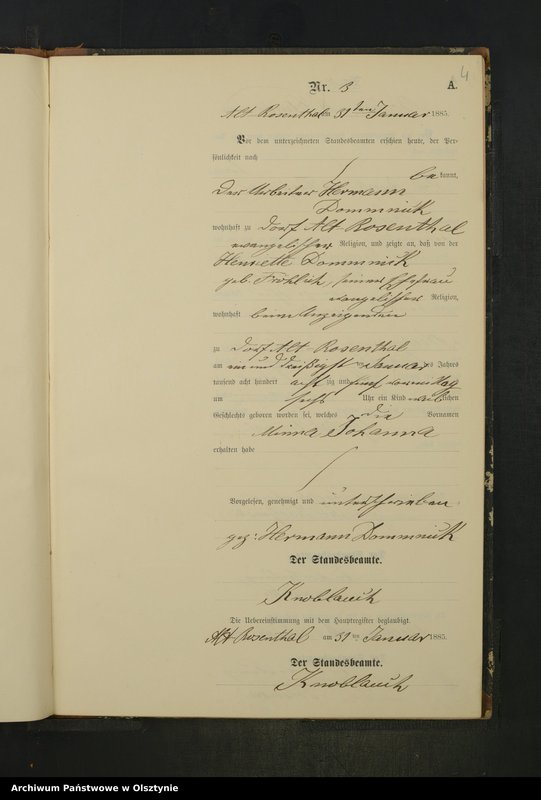 4
Nr. 3 A.
Alt Rosenthal am 31ten Januar 1885.
Vor dem unterzeichneten Standesbeamten erschien heute, der Per-
sönlichkeit nach
bekannt,
Der Arbeiter Hermann
Dommnick
wohnhaft zu Dorf Alt Rosenthal
evangelischer Religion, und zeigte an, daß von der
Henriette Dommnick
geb. Fröhlich, seiner Ehefrau
evangelischer Religion,
wohnhaft beim Anzeigenden
zu Dorf Alt Rosenthal
am ein und dreißigst en Januar des Jahres
tausend acht hundert acht zig und fünf vormittag
um sechs Uhr ein Kind weiblichen
Geschlechts geboren worden sei, welches die Vornamen
Minna Johanna
erhalten habe
Vorgelesen, genehmigt und unterschrieben
gez: Hermann Dommnick
Der Standesbeamte.
Knoblauch
Die Uebereinstimmung mit dem Hauptregister beglaubigt.
Alt Rosenthal am 31ten Januar 1885.
Der Standesbeamte.
Knoblauch
Archiwum Państwowe w Olsztynie